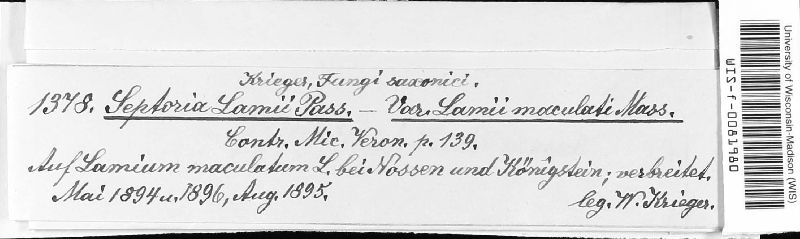 Krieger, Fungi saxonici.
1378. Septoria Lamii Pass. — Var. Lamii maculati Mass.
Contr. Mic. Veron. p. 139.
Auf Lamium maculatum L. bei Nossen und Königstein; verbreitet.
Mai 1894 u. 1896, Aug. 1895.
leg. W. Krieger.
WIS-f-0081980
University of Wisconsin-Madison (WIS)